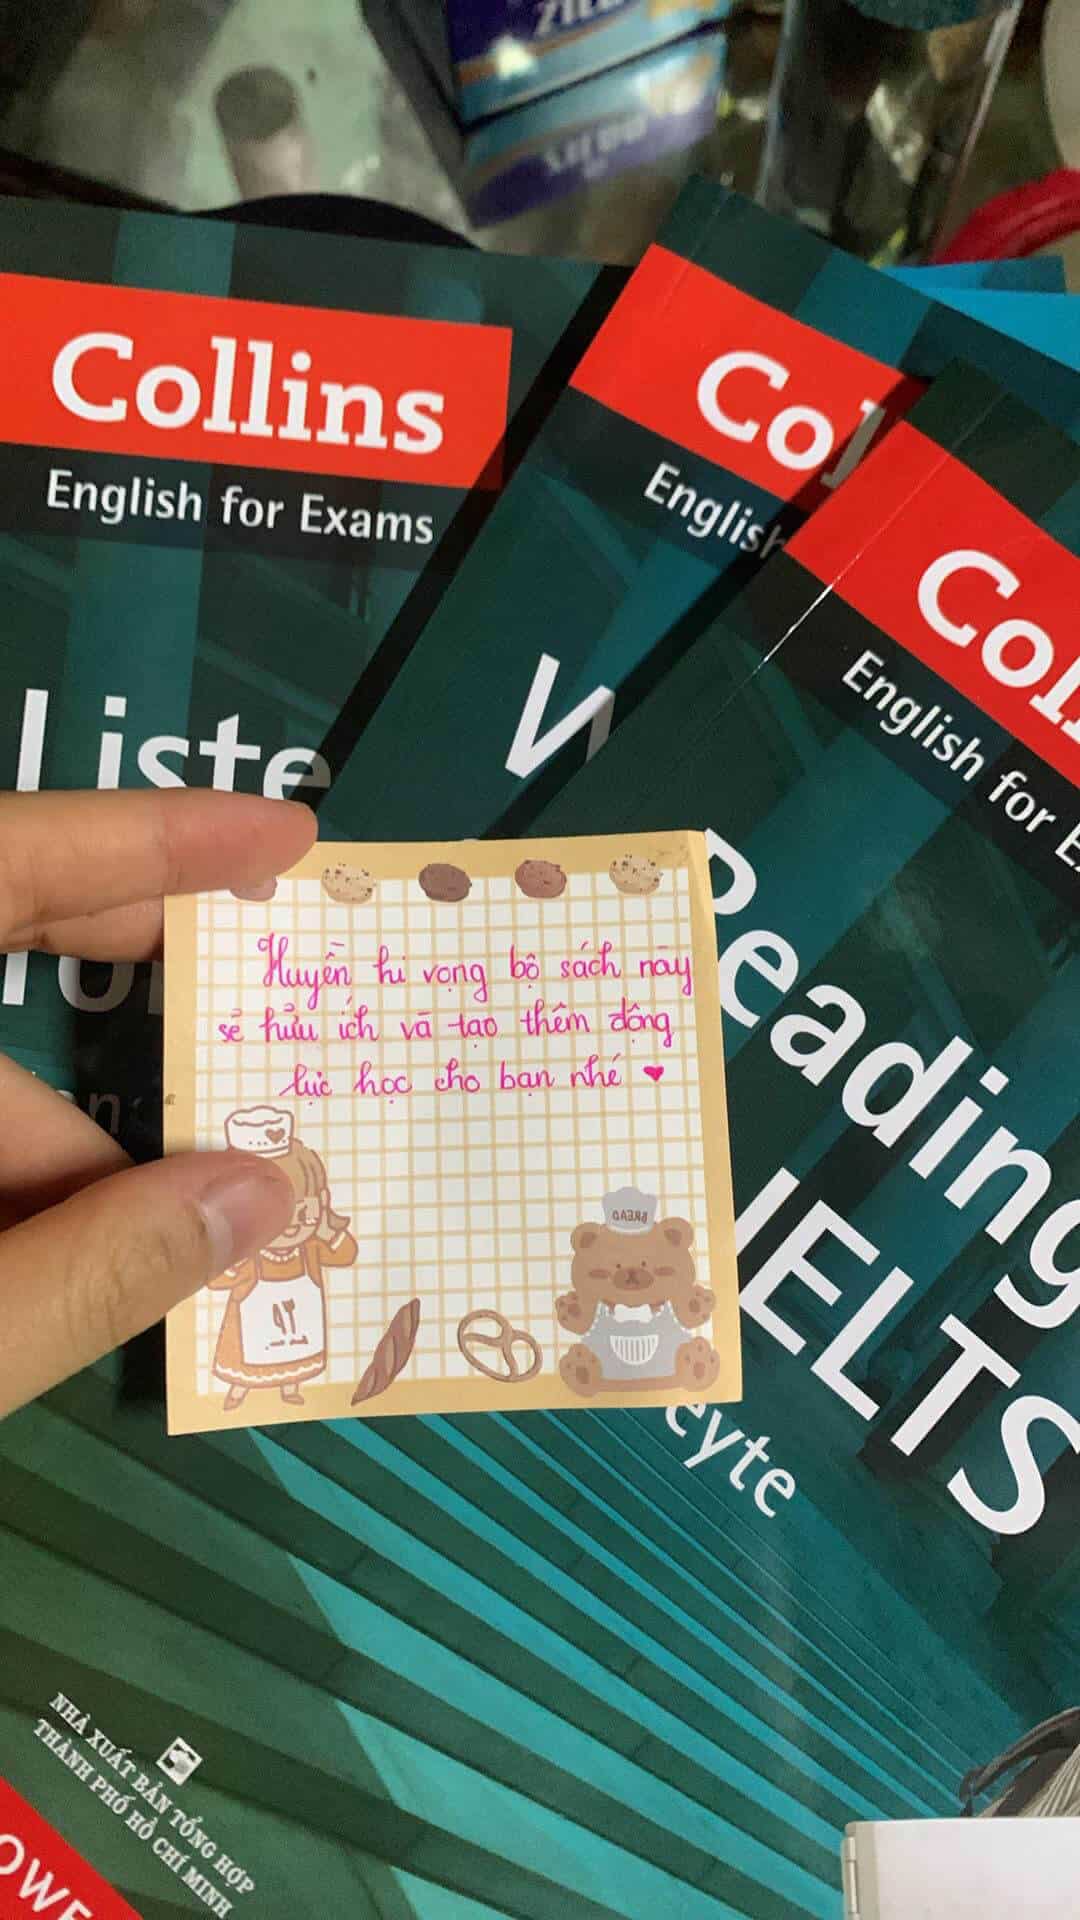 Collins
English for Exams
Liste
Co
English
W
Coll
English for E
Reading
IELTS
eyte
Huyền hi vọng bộ sách này
sẻ hửu ích và tạo thêm động
lực học cho bạn nhé ♥
BREAD
NHÀ XUẤT BẢN TỔNG HỢP
THÀNH PHỐ HỒ CHÍ MINH
OWE